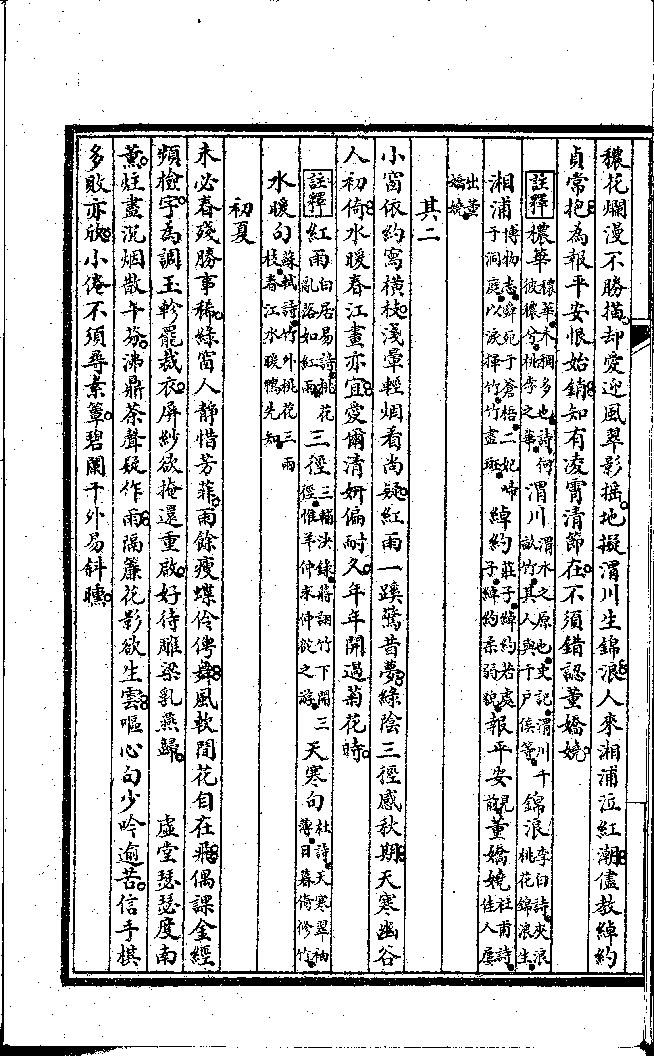 穠花爛漫不勝描却愛迎風翠影搖地擬渭川生錦浪人來湘浦泛紅潮儘教綽約
貞常把為報平安恨始銷如有凌霄清節在不須錯認董嬌嬈
註釋穠華穠華木稠多也詩何彼穠兮桃李之華渭川渭水之原也史記渭川千畝竹其人與千戶侯等錦浪李白詩夾浪桃花錦浪生
湘浦博物志舜死于蒼梧二妃啼于洞庭以淚揮竹竹盡斑綽約莊子綽約若處子綽約柔弱貌報平安見前董嬌嬈杜甫詩佳人屢
出董嬌嬈
其二
小窗依約寫橫枝淺暈輕烟看尚疑紅雨一蹊驚昔夢綠陰三徑感秋期天寒幽谷
人初倚水暖春江畫亦宜愛爾清妍偏耐久年年開過菊花時
註釋紅雨白居易詩桃花亂落如紅雨三徑三輔決錄蔣詡竹下開三徑惟羊仲求仲從之游天寒句杜詩天寒翠袖薄日暮倚修竹
水暖句蘇軾詩竹外桃花三兩枝春江水暖鴨先知
初夏
未必春殘勝事稀綠窗人靜惜芳菲雨餘瘦蝶伶俜舞風軟閒花自在飛偶課金經
頻檢字為調玉軫罷裁衣屏紗欲掩還重啟好待雕梁乳燕歸　虛堂瑟瑟度南
薰炷盡沉烟散午芬沸鼎茶聲疑作雨隔簾花影欲生雲嘔心句少吟逾苦信手棋
多敗亦欣小倦不須尋素簟碧闌干外易斜曛